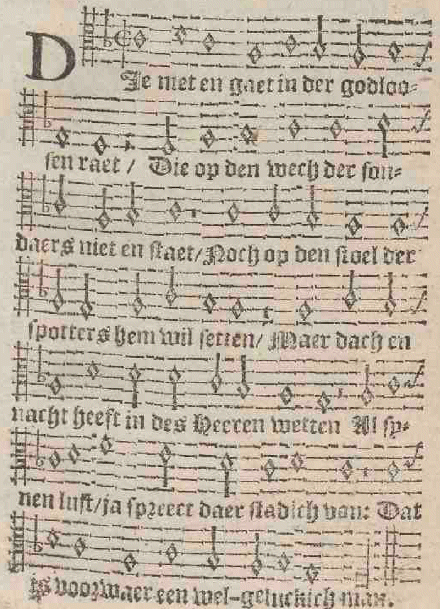 DIe niet en gaet in der godloo-
sen raet / Die op den wech der son-
daers niet en staet/Noch op den stoel der
spotters hem wil setten/ Maer dach en
nacht heeft in des Heeren wetten Al sy-
nen lust/ja spreect daer stadich van: Dat
Is voorwaer een wel-geluckich man.